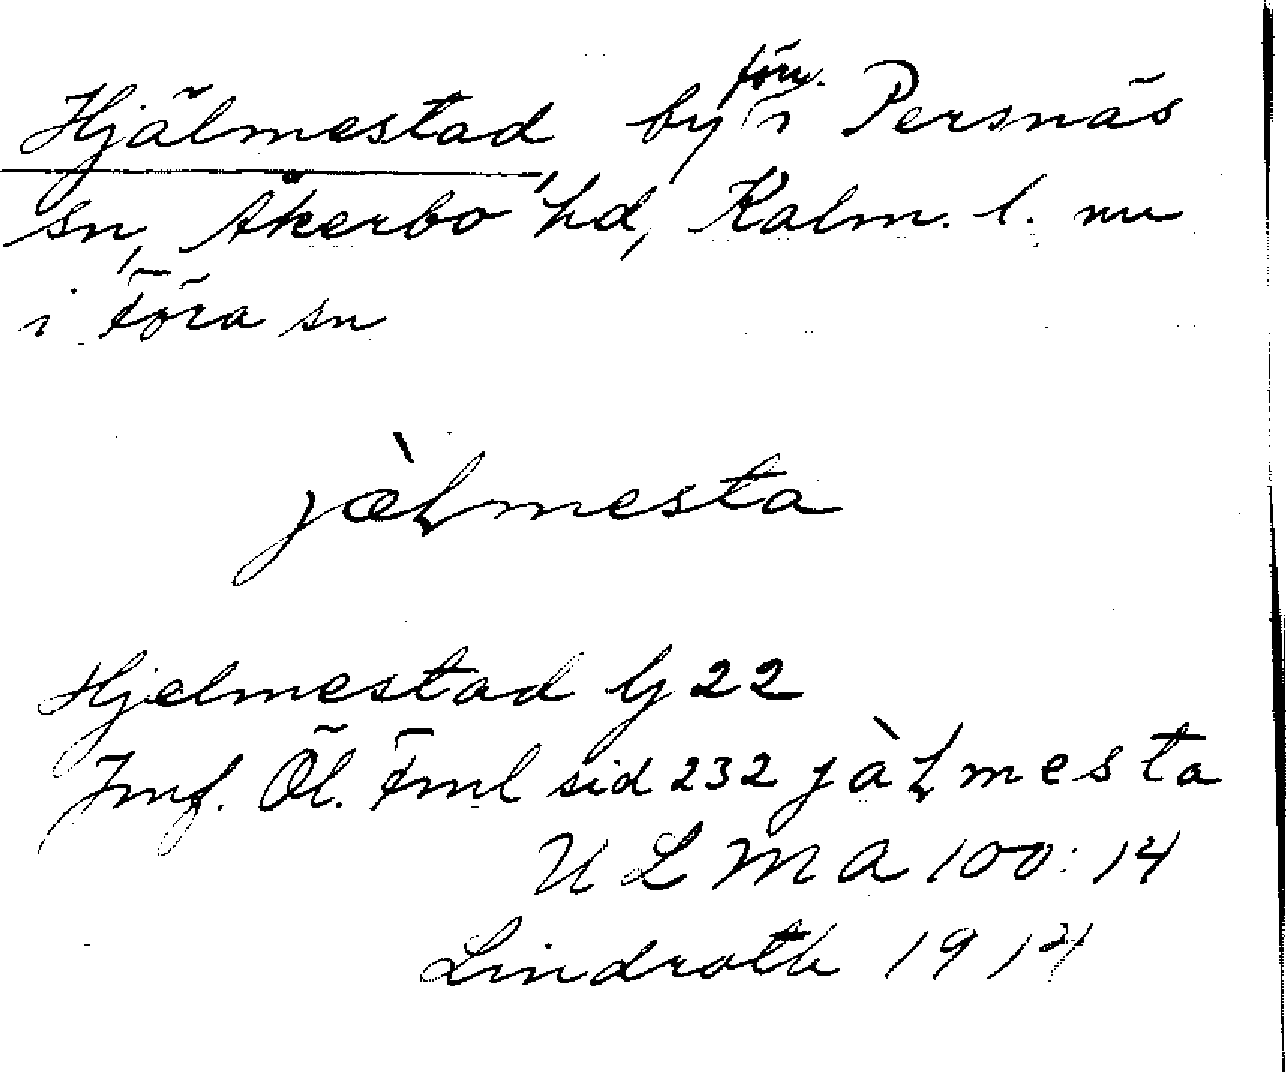 Hjälmestad, by förr. i Persnäs
sn, Åkerbo hd, Kalm. l. nu
i Föra sn
jæ̀lmesta
Hjelmestad G 22
Jmf. Öl. Fml sid 232 jàlmesta
ULMA 100:14
Lindroth 1914